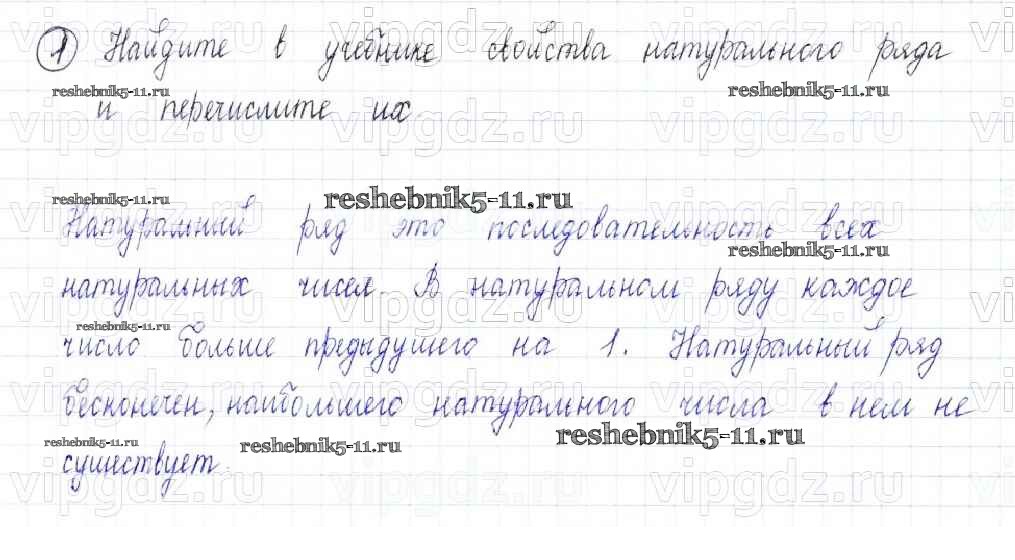 1 Найдите в учебнике свойства натурального ряда
reshebnik5-11.ru reshebnik5-11.ru
и перечислите их
vipgdz.ru vipgdz.ru vipgdz.ru vipgdz.ru
reshebnik5-11.ru reshebnik5-11.ru
Натуральный ряд это последовательность всех
reshebnik5-11.ru
натуральных чисел. В натуральном ряду каждое
reshebnik5-11.ru
число больше предыдущего на 1. Натуральный ряд
бесконечен, наибольшего натурального числа в нем не
reshebnik5-11.ru reshebnik5-11.ru reshebnik5-11.ru
существует.
vipgdz.ru vipgdz.ru vipgdz.ru vipgdz.ru